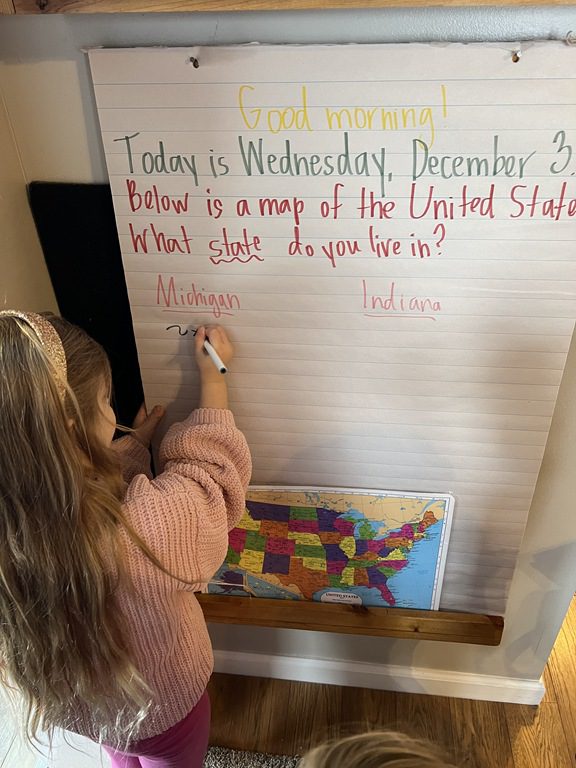 Good morning!
Today is Wednesday, December 3.
Below is a map of the United State
What state do you live in?
Michigan Indiana
UNITED STATES